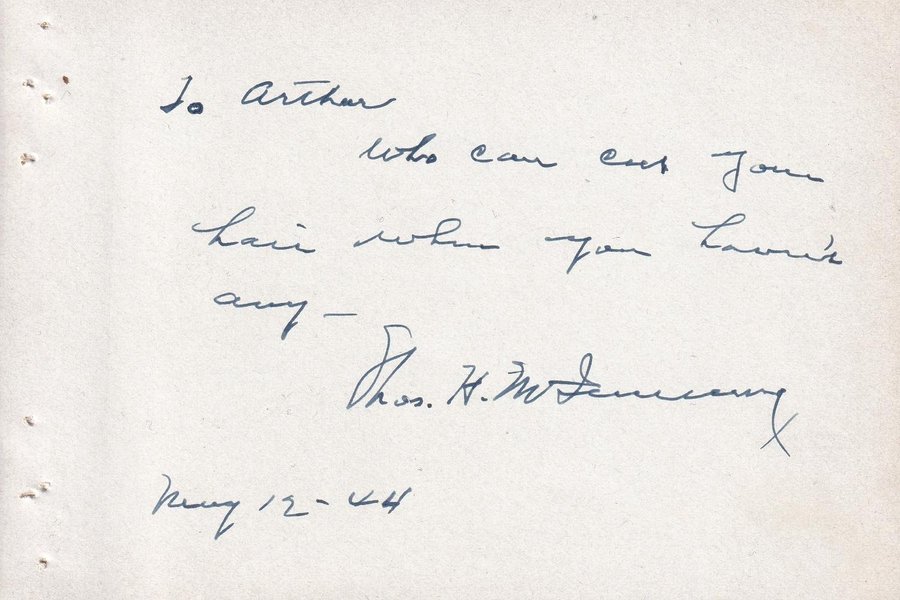 To Arthur
who can cut your
hair when you haven't
any —
Thos. H.
May 12 - 44